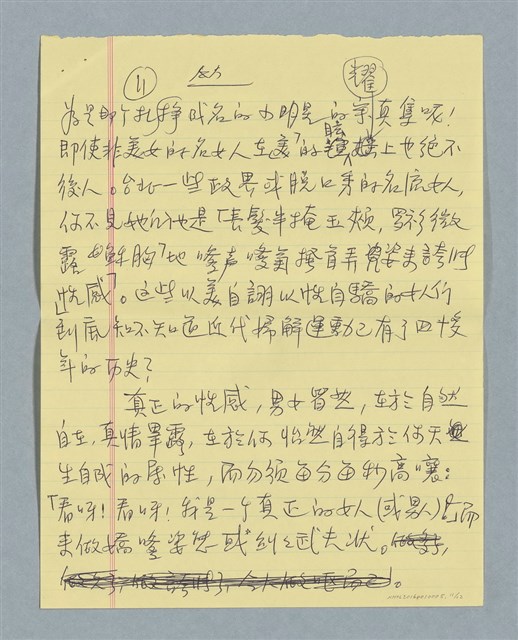 11
為是那个扎掙成名的小明星的寫真集呢!
即使非美女的名女人在美「的」炫耀上也絕不
後人。台北一些政界或脫口秀的名流女人,
你不見她们也是「長髮半掩玉頰,羅衫微
露酥胸」地嗲声嗲氣搔首弄姿來誇附
「性感」。这些以美自詡以性自驕的女人们
到底知不知道近代婦解運動已有了四十幾
年的历史?
真正的性感,男女皆然,在於自然
自在,真情畢露,在於你怡然自得於你天
生自成的屬性,而勿須每分每秒高嚷:
「看呀!看呀!我是一个真正的女人(或男人)」而
來做嬌嗲姿態或糾糾武夫狀。